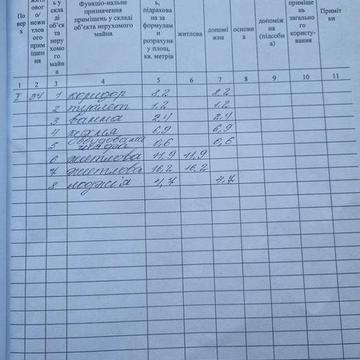 По
верх
ового/
нежи
тлов
ого
прим
іщен
ня
ь у
скла
ді
об'єк
та
нерух
омого
майн
а
Функціо-нальне
призначення
приміщень у складі
об'єкта нерухомого
майна
ь,
підрахова
на за
формулам
и
розрахунк
у площ,
кв. метрів
житлова
допомі
жна
основн
а
допоміж
на
(підсобн
а)
приміще
нь
загально
го
користу-
вання
Приміт
ки
1 2 3 4 5 6 7 8 9 10 11
I 34 1 коридор 8,2 8,2
2 туалет 1,2 1,2
3 ванна 2,4 2,4
4 кухня 6,9 6,9
5 вбудована шафа 0,6 0,6
6 житлова 11,9 11,9
7 житлова 16,2 16,2
8 лоджія 4,7 4,7